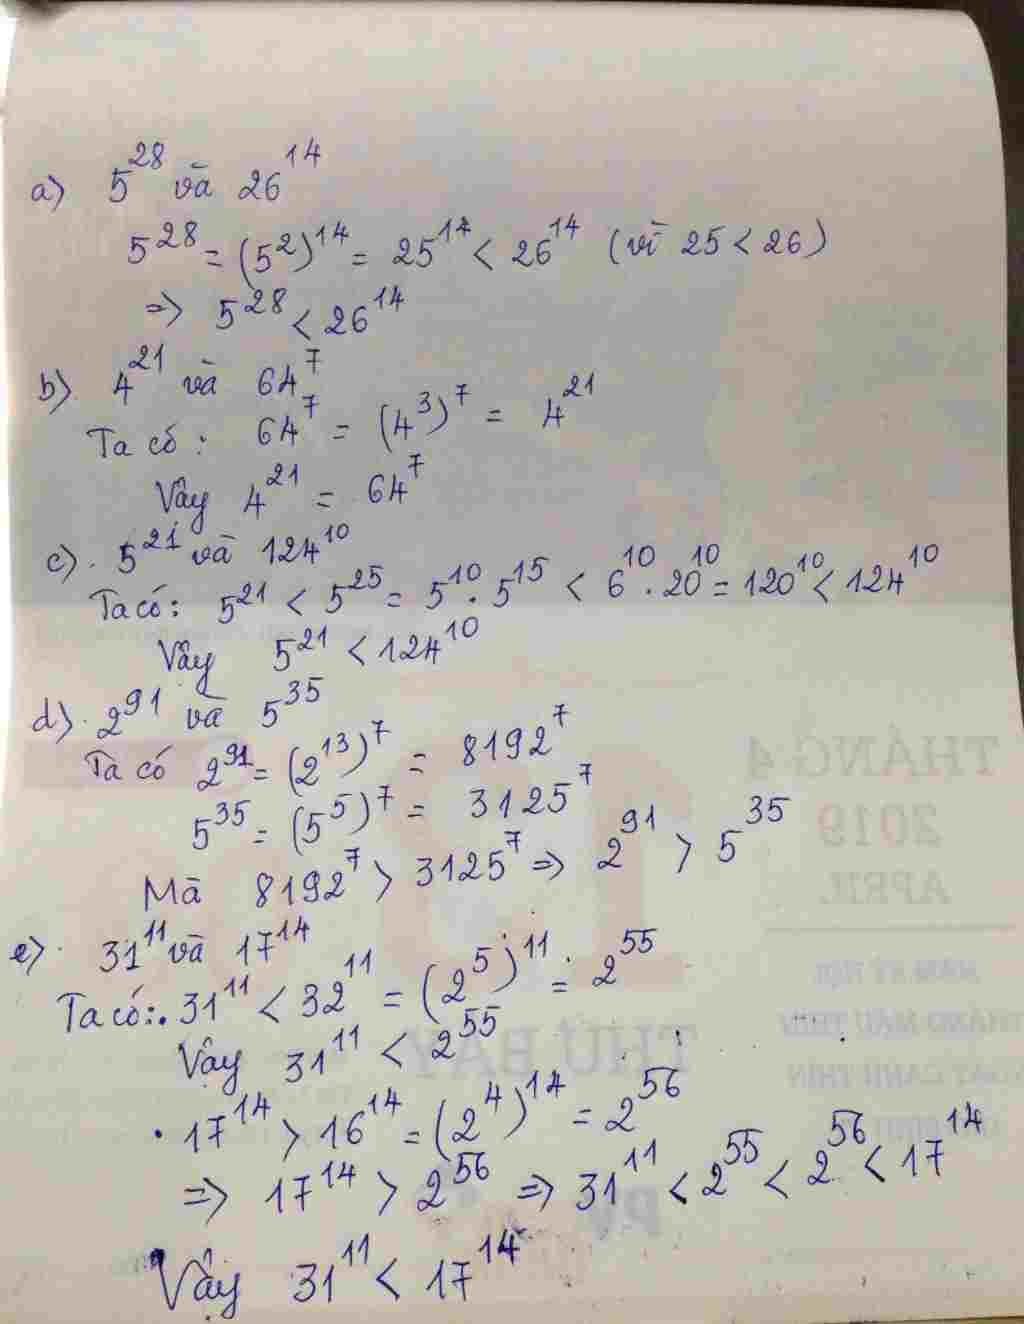 a) 5^28 và 26^14
5^28 = (5^2)^14 = 25^14 < 26^14 (vì 25 < 26)
=> 5^28 < 26^14
b) 4^21 và 64^7
Ta có: 64^7 = (4^3)^7 = 4^21
Vậy 4^21 = 64^7
c). 5^21 và 124^10
Ta có: 5^21 < 5^25 = 5^10 . 5^15 < 6^10 . 20^10 = 120^10 < 124^10
Vậy 5^21 < 124^10
d). 2^91 và 5^35
Ta có 2^91 = (2^13)^7 = 8192^7
5^35 = (5^5)^7 = 3125^7
Mà 8192^7 > 3125^7 => 2^91 > 5^35
e). 31^11 và 17^14
Ta có:. 31^11 < 32^11 = (2^5)^11 = 2^55
Vậy 31^11 < 2^55
. 17^14 > 16^14 = (2^4)^14 = 2^56
=> 17^14 > 2^56 => 31^11 < 2^55 < 2^56 < 17^14
Vậy 31^11 < 17^14
THÁNG 4
2019
APRIL
13
THỨ BẢY